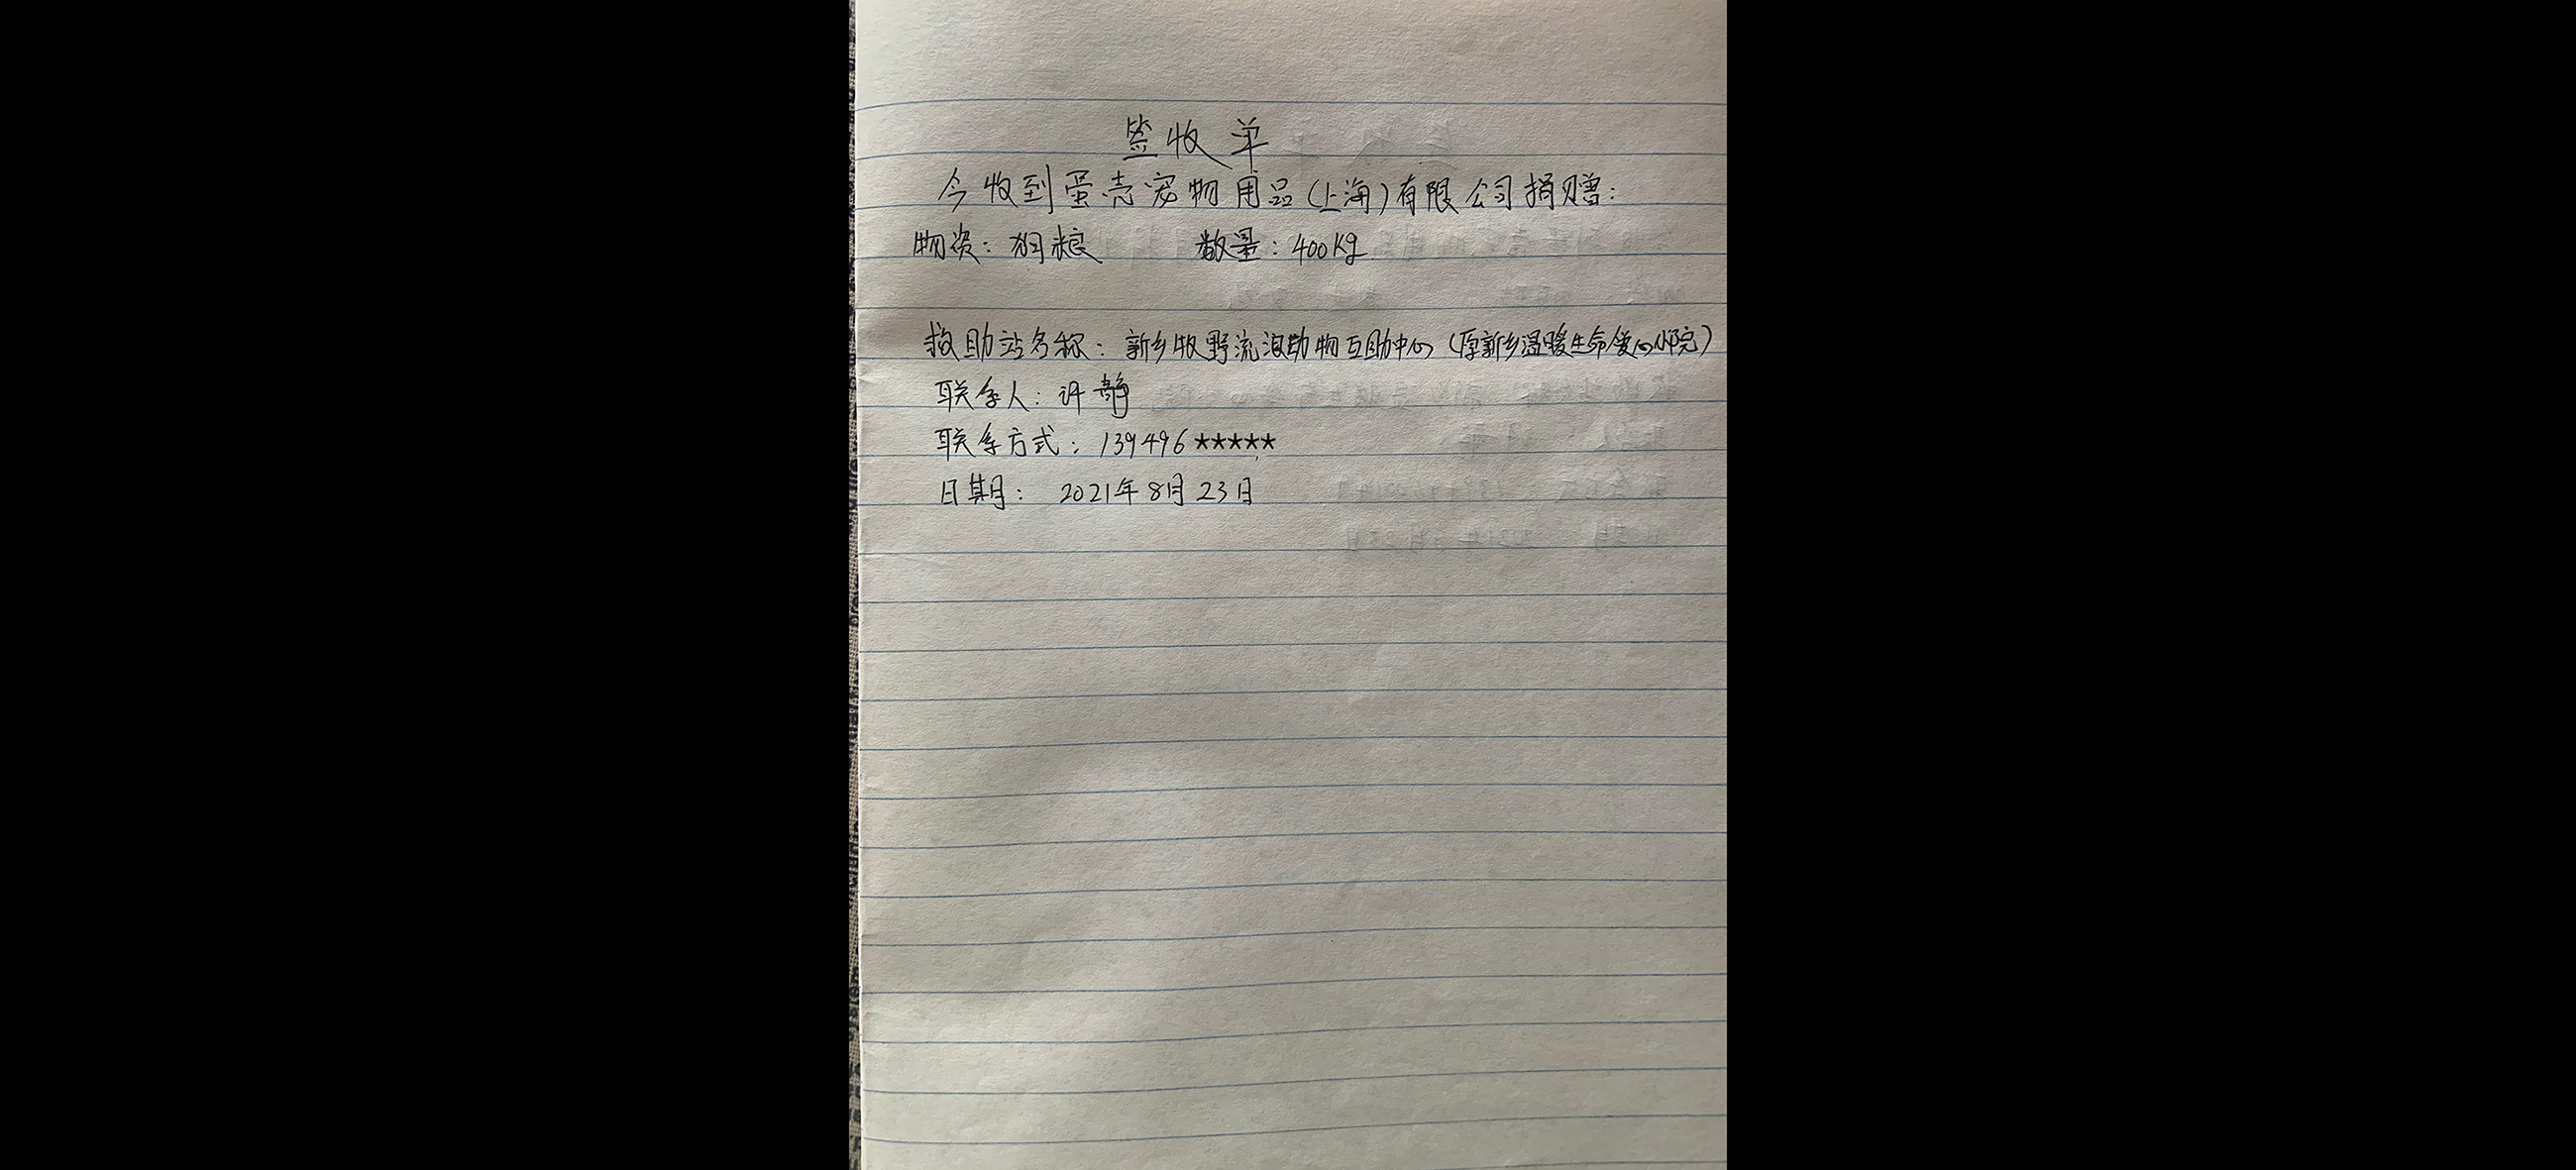 签收单
今收到蛋壳宠物用品(上海)有限公司捐赠:
物资:狗粮 数量:400Kg
救助站名称:新乡牧野流浪动物互助中心(原新乡温暖生命爱心小院)
联系人:许静
联系方式:139496*****
日期: 2021年8月23日